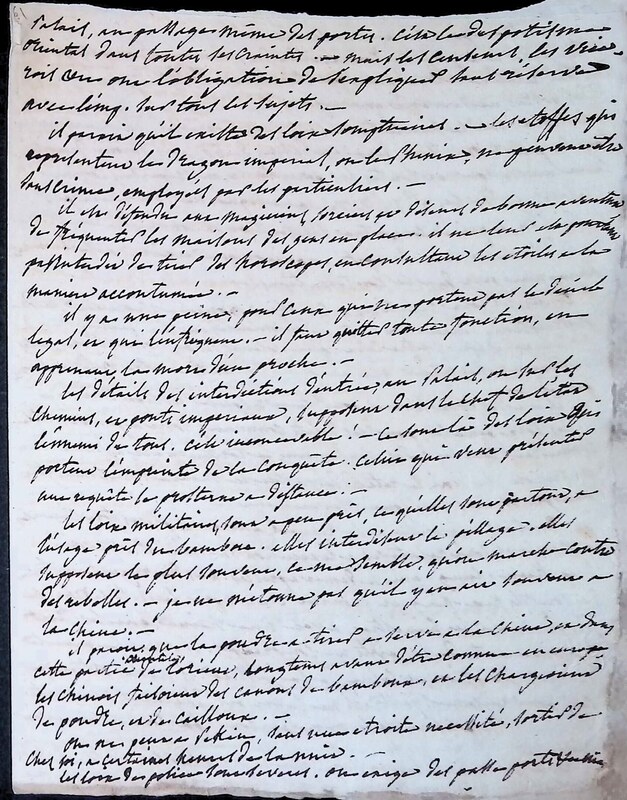 Palais, au passage même des portes. C'est le despotisme
oriental dans toutes ses craintes. — mais les censeurs, les vice-
rois ont l'obligation de s'expliquer sans réserve
avec l'emp. sur tous les sujets. —
il paroit qu'il existe des loix somptuaires. — les étoffes qui
représentent le dragon impérial, ou le Phenix, ne peuvent être
sans crime, employées par les particuliers. —
il est défendu aux magiciens, sorciers et diseurs de bonne aventure
de fréquenter les maisons des gens en place. il ne leur est pourtant
pas interdit de tirer des horoscopes, en consultant les étoiles a la
maniere accoutumée. —
il y a une peine, pour ceux qui ne portent pas le deuil
legal, et qui l'enfreignent. — il faut quitter toute fonction, en
apprenant la mort d'un proche. —
les détails des interdictions d'entrée, au Palais, ou sur les
chemins, et ponts impériaux, supposent dans le chef de l'état
l'ennemi de tous. cela est inconcevable ! — ce sont là des loix qui
portent l'empreinte de la conquête. celui qui veut présenter
une requête se prosterne a distance. —
les loix militaires, sont a peu près, ce qu'elles sont partout, a
l'usage près du bambou. elles interdisent le pillage. elles
supposent le plus souvent, ce me semble, qu'on marche contre
des rebelles. — je ne m'étonne pas qu'il y en ait souvent a
la Chine. —
il paroit que la poudre a tirer a servi a la Chine, et dans
cette partie de l'orient, longtems avant d'être connue en europe
les Chinois faisoient des canons de bambous, et les chargeoient
de poudre, et de cailloux. —
on ne peut a Pekin, sans une étroite necessité, sortir de
chez soi, a certaines heures de la nuit. —
les loix de police sont severes. on exige des passe ports